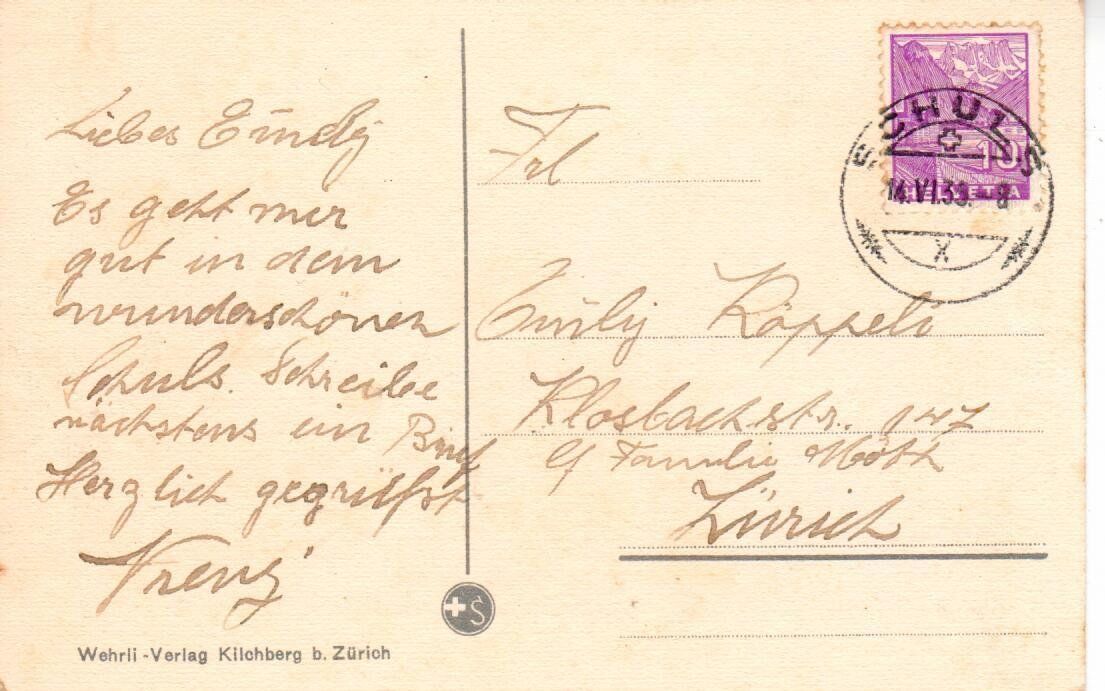 Liebes Emily
Es geht mir
gut in dem
wunderschönen
Schuls. Schreibe
nächstens ein Brief
Herzlich gegrüsst
Vreny
Wehrli-Verlag Kilchberg b. Zürich
S
SCHULS
10
HELVETIA
14.VI.
X
Frl
Emily Käppeli
Klosbachstr. 147
Familie
Zürich